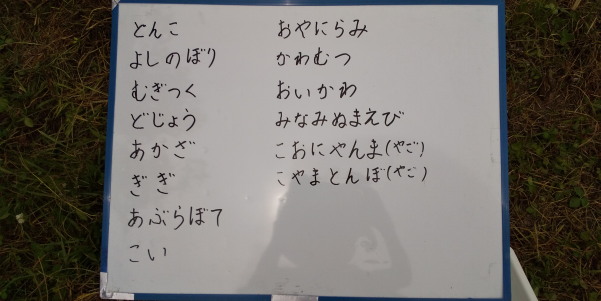 どんこ
よしのぼり
むぎつく
どじょう
あかざ
ぎぎ
あぶらぼて
こい
おやにらみ
かわむつ
おいかわ
みなみぬまえび
こおにやんま(やご)
こやまとんぼ(やご)